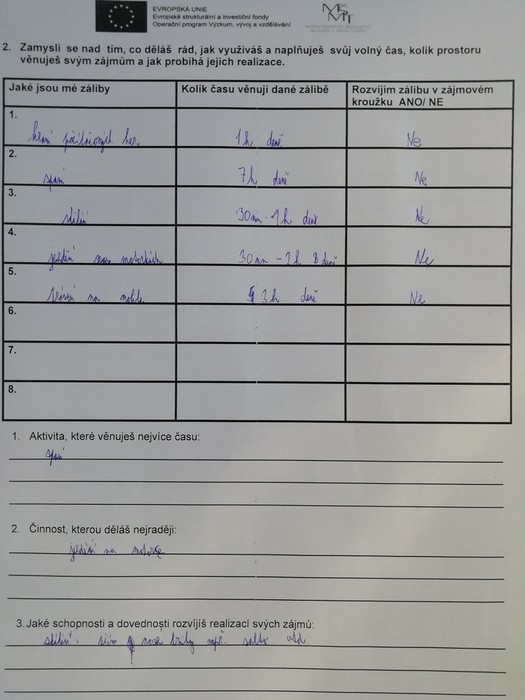 EVROPSKÁ UNIE
Evropské strukturální a investiční fondy
Operační program Výzkum, vývoj a vzdělávání
MŠMT
2. Zamysli se nad tím, co děláš rád, jak využíváš a naplňuješ svůj volný čas, kolik prostoru
věnuješ svým zájmům a jak probíhá jejich realizace.
Jaké jsou mé záliby Kolik času věnuji dané zálibě Rozvíjím zálibu v zájmovém
kroužku ANO/ NE
1.
hraní počítačových her 1h deně Ne
2.
spaní 7h deně Ne
3.
30min-1h deně Ne
4.
ježdění na motorkách 30min -1h deně Ne
5.
na mobile 3h deně Ne
6.
7.
8.
1. Aktivita, které věnuješ nejvíce času:
spaní
2. Činnost, kterou děláš nejraději:
ježdění na motorce
3. Jaké schopnosti a dovednosti rozvíjíš realizací svých zájmů:
nové triky např. salto